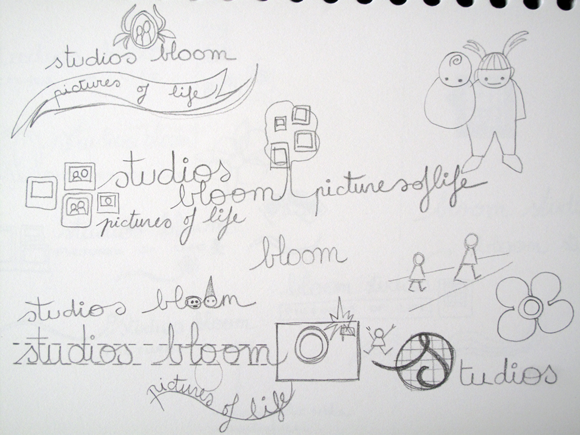 studios bloom
pictures of life
studios
bloom
pictures of life
picturesoflife
bloom
studios bloom
studios bloom
Studios
pictures of life